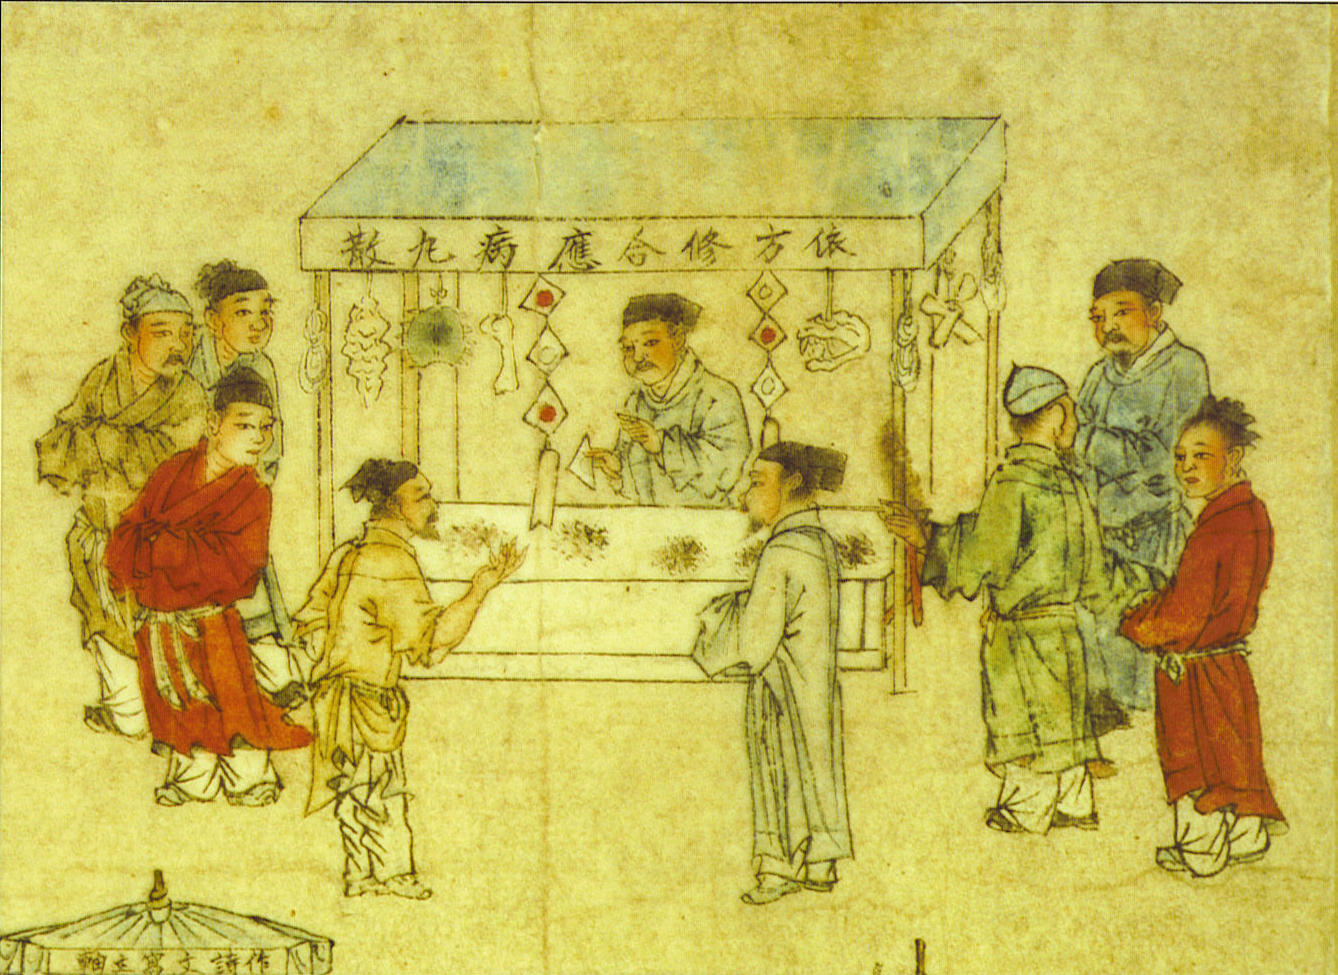 依方修合應病丸散
作詩文寫立軸